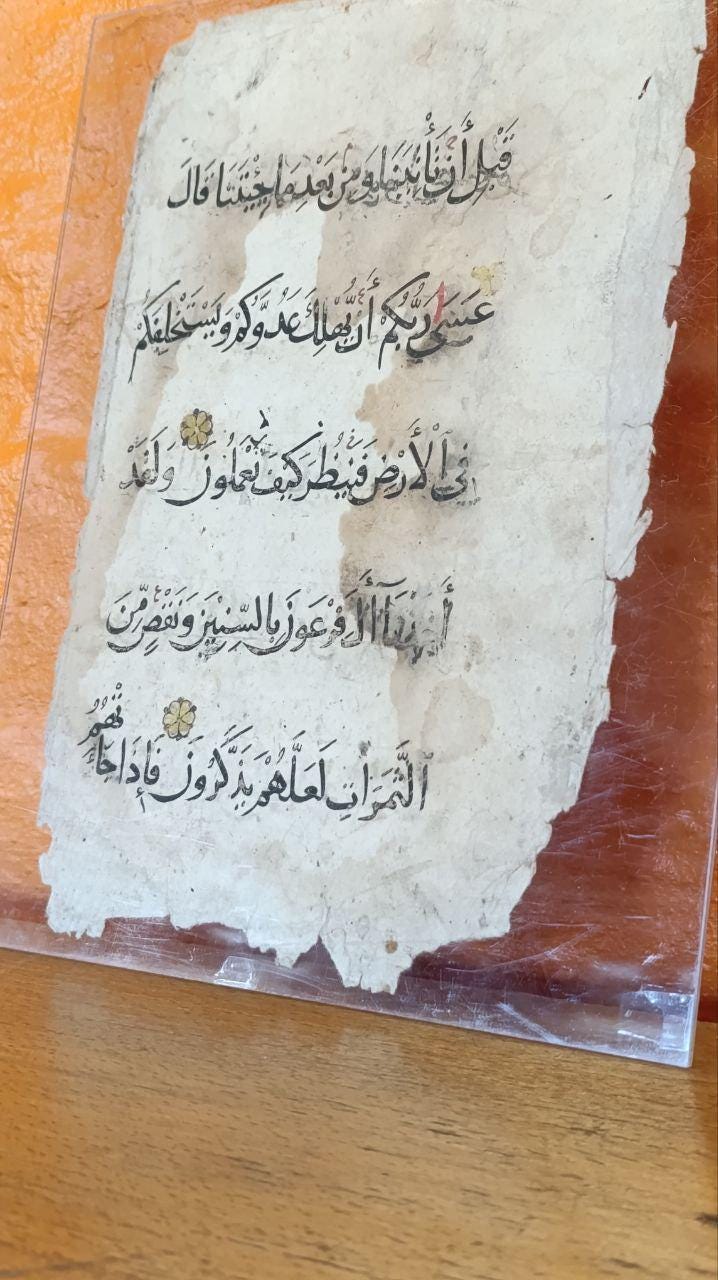 قَبْلِ أَن تَأْتِيَنَا وَمِن بَعْدِ مَا جِئْتَنَا قَالَ
عَسَىٰ رَبُّكُمْ أَن يُهْلِكَ عَدُوَّكُمْ وَيَسْتَخْلِفَكُمْ
فِي الْأَرْضِ فَيَنظُرَ كَيْفَ تَعْمَلُونَ وَلَقَدْ
أَخَذْنَا آلَ فِرْعَوْنَ بِالسِّنِينَ وَنَقْصٍ مِّنَ
الثَّمَرَاتِ لَعَلَّهُمْ يَذَّكَّرُونَ فَإِذَا جَاءَتْهُمُ